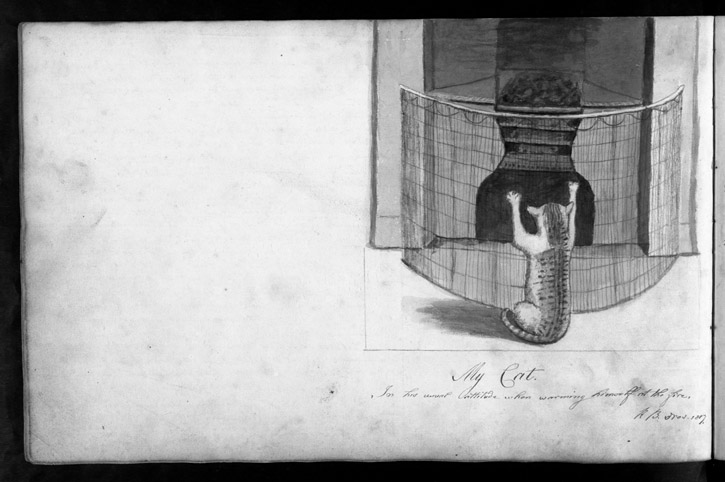 My Cat.
In his usual Cattitude when warming himself at the fire.
R B.